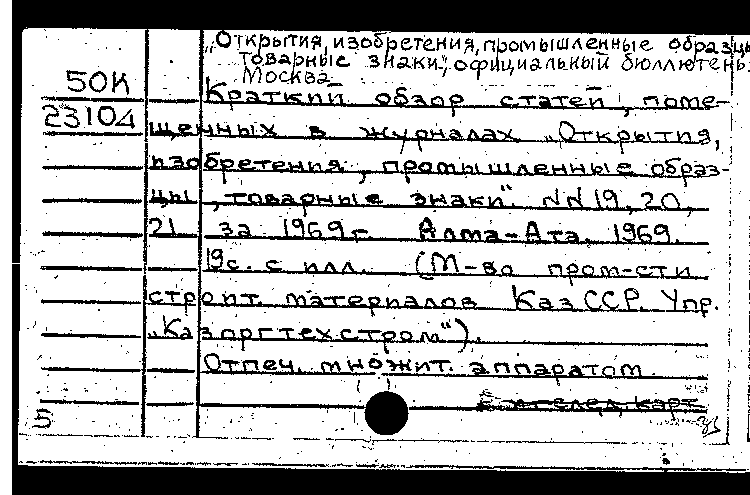 „Открытия, изобретения, промышленные образцы
товарные знаки", официальный бюллютень
Москва
50К
23104
Краткий обзор статей, поме-
щенных в журналах „Открытия,
изобретения, промышленные образ-
цы, товарные знаки". NN 19, 20,
21 за 1969г Алма-Ата, 1969.
19с. с илл. (М-во пром-сти
строит. материалов КазССР. Упр.
„Казоргтехстром").
Отпеч. множит. аппаратом
след. карт
5